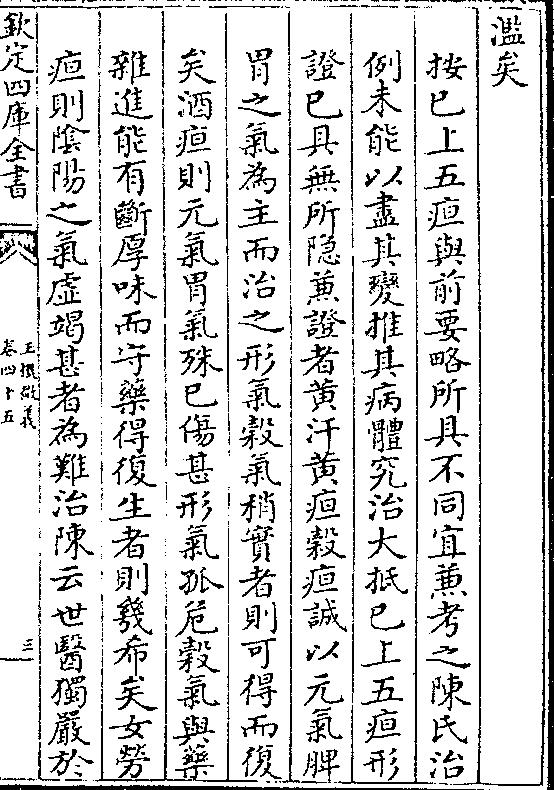 濫矣
按已上五疸與前要略所具不同宜兼考之陳氏治
例未能以盡其變推其病體究治大抵已上五疸形
證已具無所隐兼證者黄汗黄疸穀疸誠以元氣脾
胃之氣為主而治之形氣穀氣稍實者則可得而復
矣酒疸則元氣胃氣殊已傷甚形氣孤危穀氣與藥
雜進能有斷厚味而守藥得復生者則幾希矣女勞
疸則陰陽之氣虚竭甚者為難治陳云世醫獨嚴於
欽定四庫全書
玉機微義
卷四十五
三